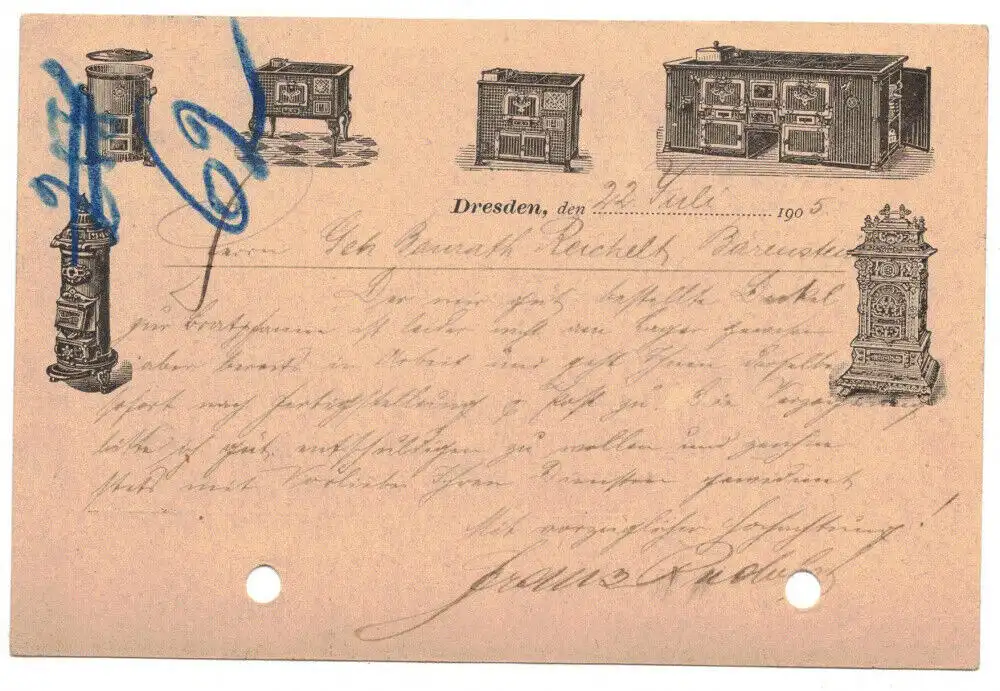 62
Dresden, den 22 Juli 1905.
Herrn Geh Baurath Reichelt Bärenstein
Der mir güt. bestellte Deckel
zur Bratpfanne ist leider nicht am Lager gewesen
aber bereits in Arbeit und geht Ihnen derselbe
sofort nach Fertigstellung p Post zu. Die Verzögerung
bitte ich güt. entschuldigen zu wollen und zeichne
stets mit Vorliebe Ihren Diensten gewidmet
Mit vorzüglicher Hochachtung!
Franz